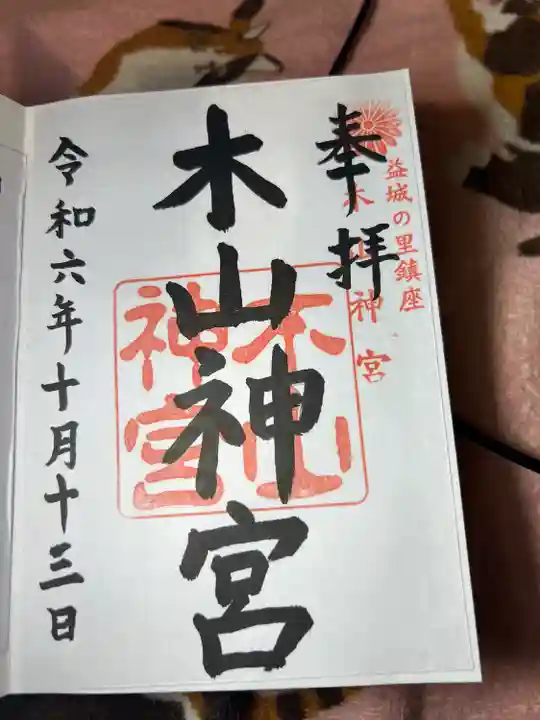 奉拝
益城の里鎮座
木山神宮
木山神宮
木山神宮
令和六年十月十三日